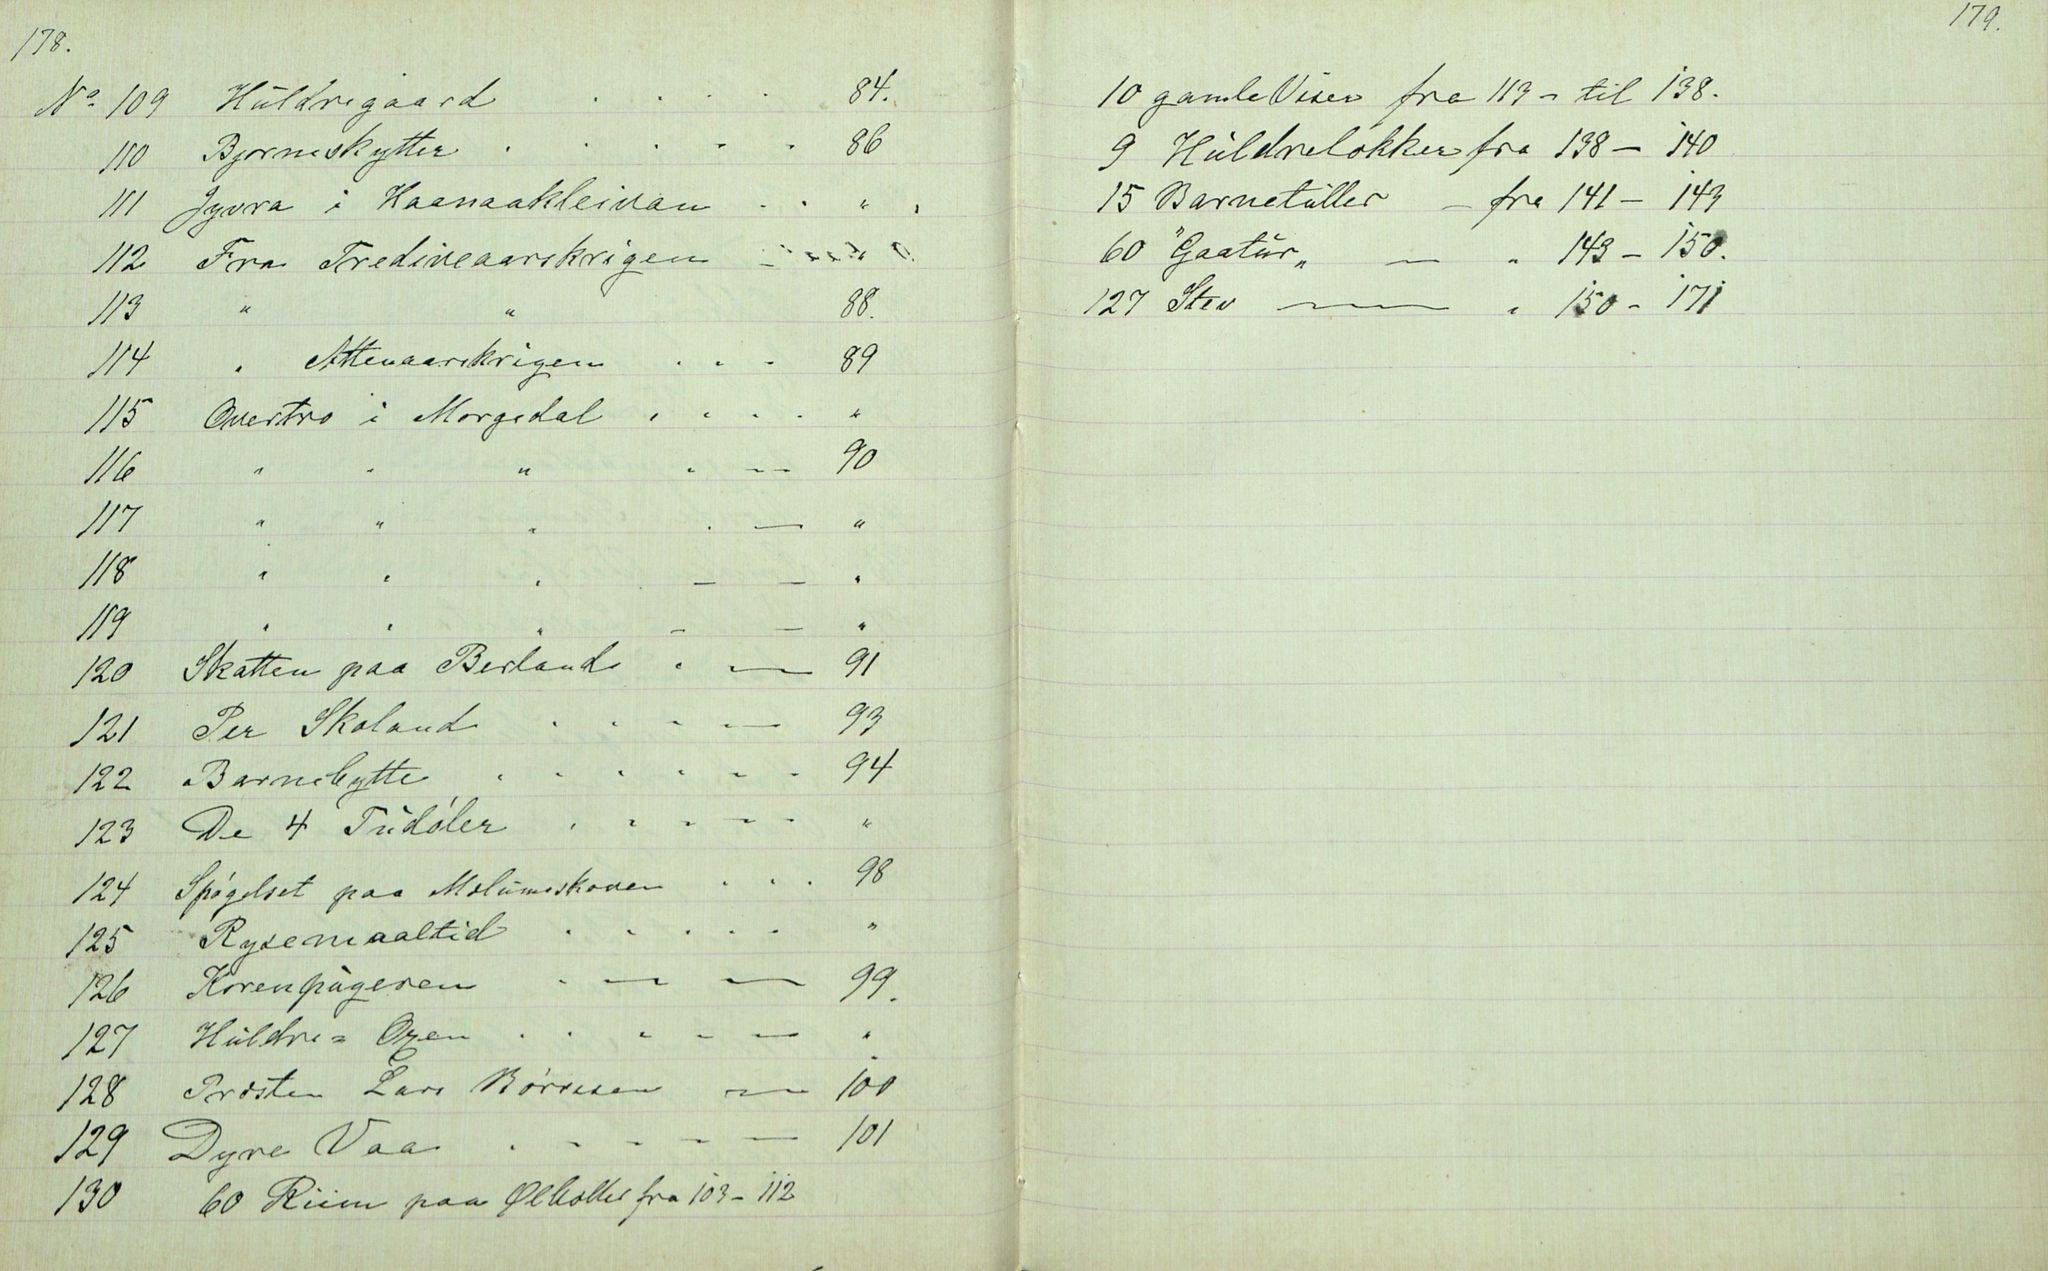 178.
No 109 Huldregaard . . . . 84.
110 Bjørneskytter . . . - . 86
111 Jyvra i Haanaakleivan . . " .
112 Fra Trediveaarskrigen - "
113 " " 88.
114 " Attenaarskrigen . . - 89
115 Overtro i Morgedal . . . . "
116 " " " . - 90
117 " " " . - "
118 " " " - - "
119 " " " - - "
120 Skatten paa Berland . - 91
121 Per Skoland . . . - 93
122 Barnebytte . . . . . . 94
123 De 4 Tudøler . . . - - "
124 Spøgelset paa Molumskoven . . . 98
125 Rysemaaltid . . . . . "
126 Korenpigeren . - - 99.
127 Huldre= Oxen . . . - - "
128 Præsten Lars Børresen - 100
129 Dyre Vaa . - - - - 101
130 60 Riim paa Ølboller fra 103 - 112
179.
10 gamle Viser fra 113 - til 138.
9 Huldrelokker fra 138 - 140
15 Barnetuller - fra 141 - 143
60 "Gaatur" - " 143 - 150.
127 Stev - " 150 - 171